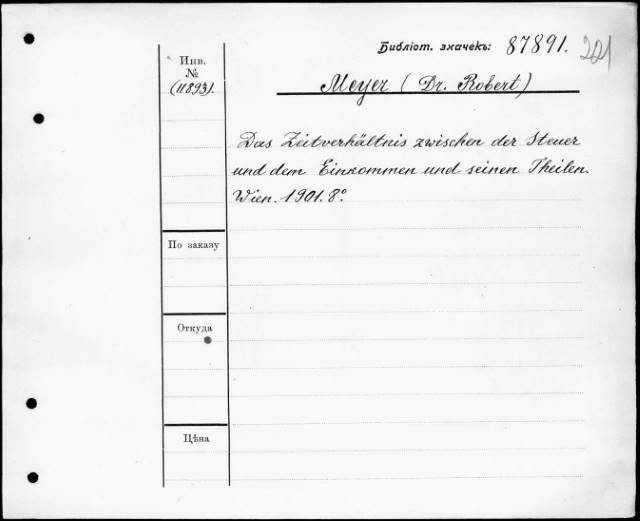 Библіот. значекъ: 87891. 201
Инв.
№
(11893).
Meyer (Dr. Robert)
Das Zeitverhältnis zwischen der Steuer
und dem Einkommen und seinen Theilen.
Wien. 1901. 8º.
По заказу
Откуда
Цѣна